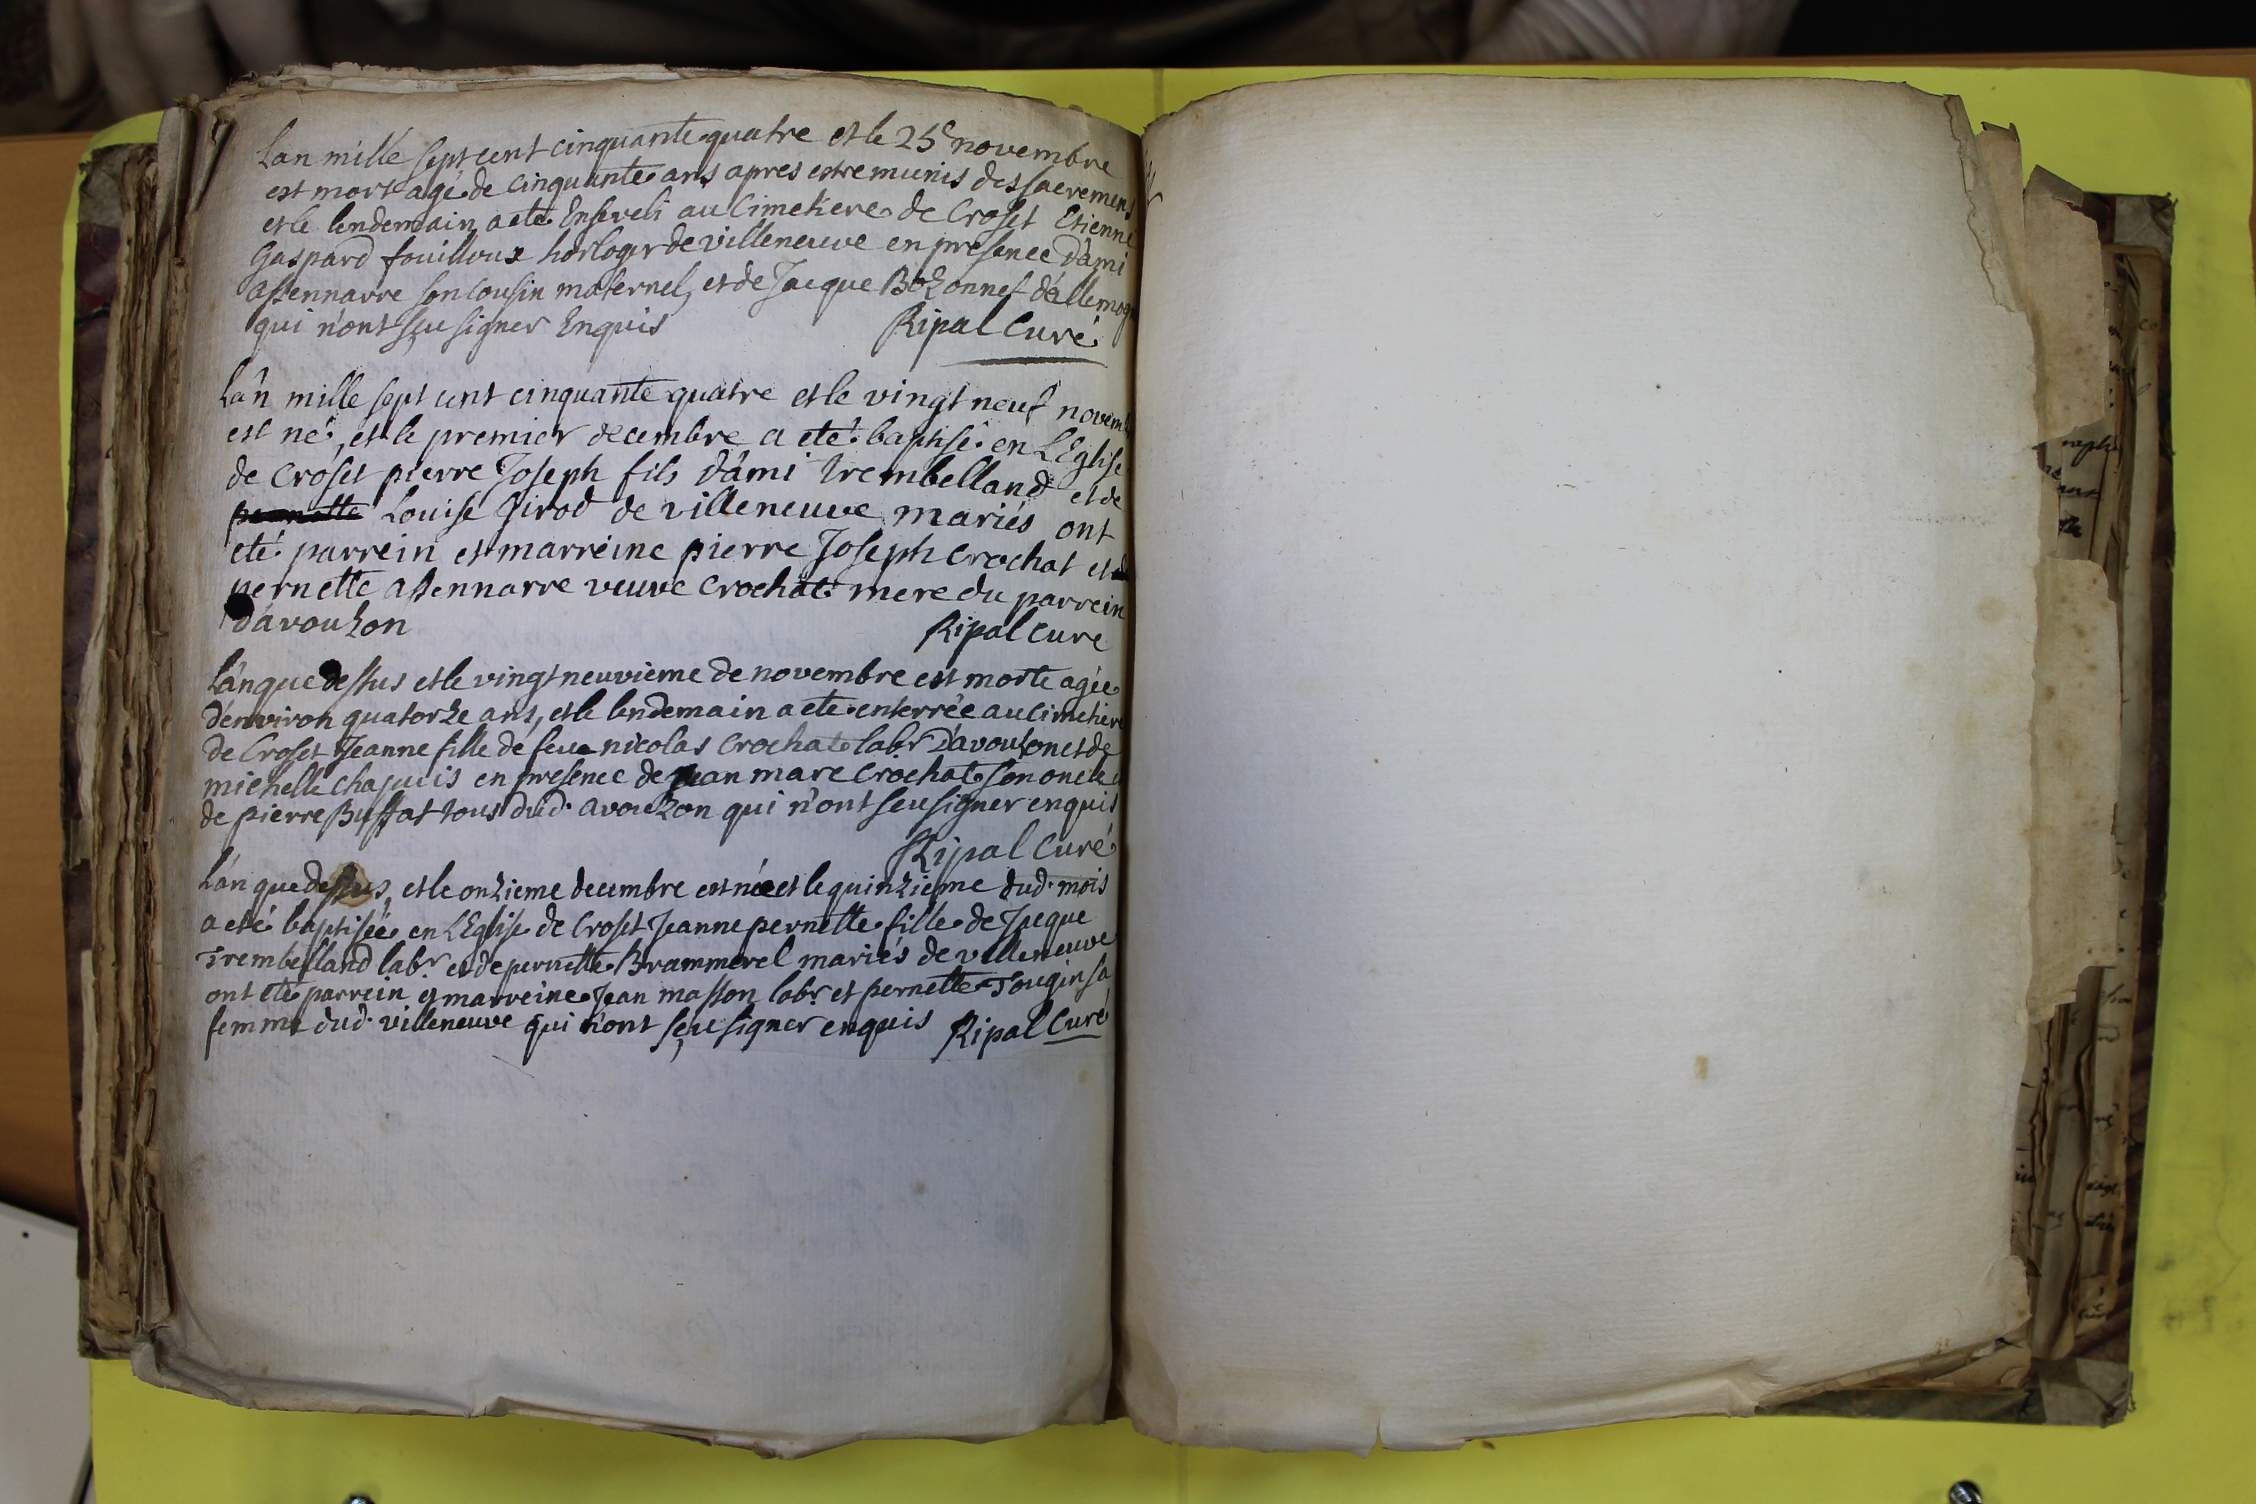 Lan mille sept cent cinquante quatre et le 25e novembre
est mort agé de cinquante ans apres estre munis des sacremens
et le lendemain a eté Enseveli au Cimetiere de Croset Etienne
Gaspard fouilloux horloger de villeneuve en presence d'ami
Assennarre son Cousin maternel, et de Jacque Bozonnet d'allemogne
qui n'ont sçeu signer Enquis Ripal Curé
Lan mille sept cent cinquante quatre et le vingt neuf novemb
est né, et le premier decembre a eté baptisé en L'Eglise
de Croset pierre Joseph fils d'ami trembelland et de
pernette Louise Girod de villeneuve mariés ont
eté parrein et marreine pierre Joseph Crochat et
pernette assennarre veuve Crochat mere du parrein
d'avouzon Ripal Curé
L'an que dessus et le vingt neuvieme de novembre est morte agée
d'environ quatorze ans, et le lendemain a eté enterrée au Cimetiere
de Croset Jeanne fille de feu nicolas Crochat labr d'avouzon et de
michelle Chapuis en presence de Jean marc Crochat son oncle
de pierre Buffat tous dud. avouzon qui n'ont sceu signer enquis
Ripal Curé
L'an que dessus, et le onzieme decembre est née et le quinzieme dud. mois
a eté baptisée en L'Eglise de Croset Jeanne pernette fille de Jacque
Trembelland labr. et de pernette Brammerel mariés de villeneuve
ont eté parrein et marreine Jean masson labr. et pernette Tougin sa
femme dud. villeneuve qui n'ont sçeu signer enquis Ripal Curé